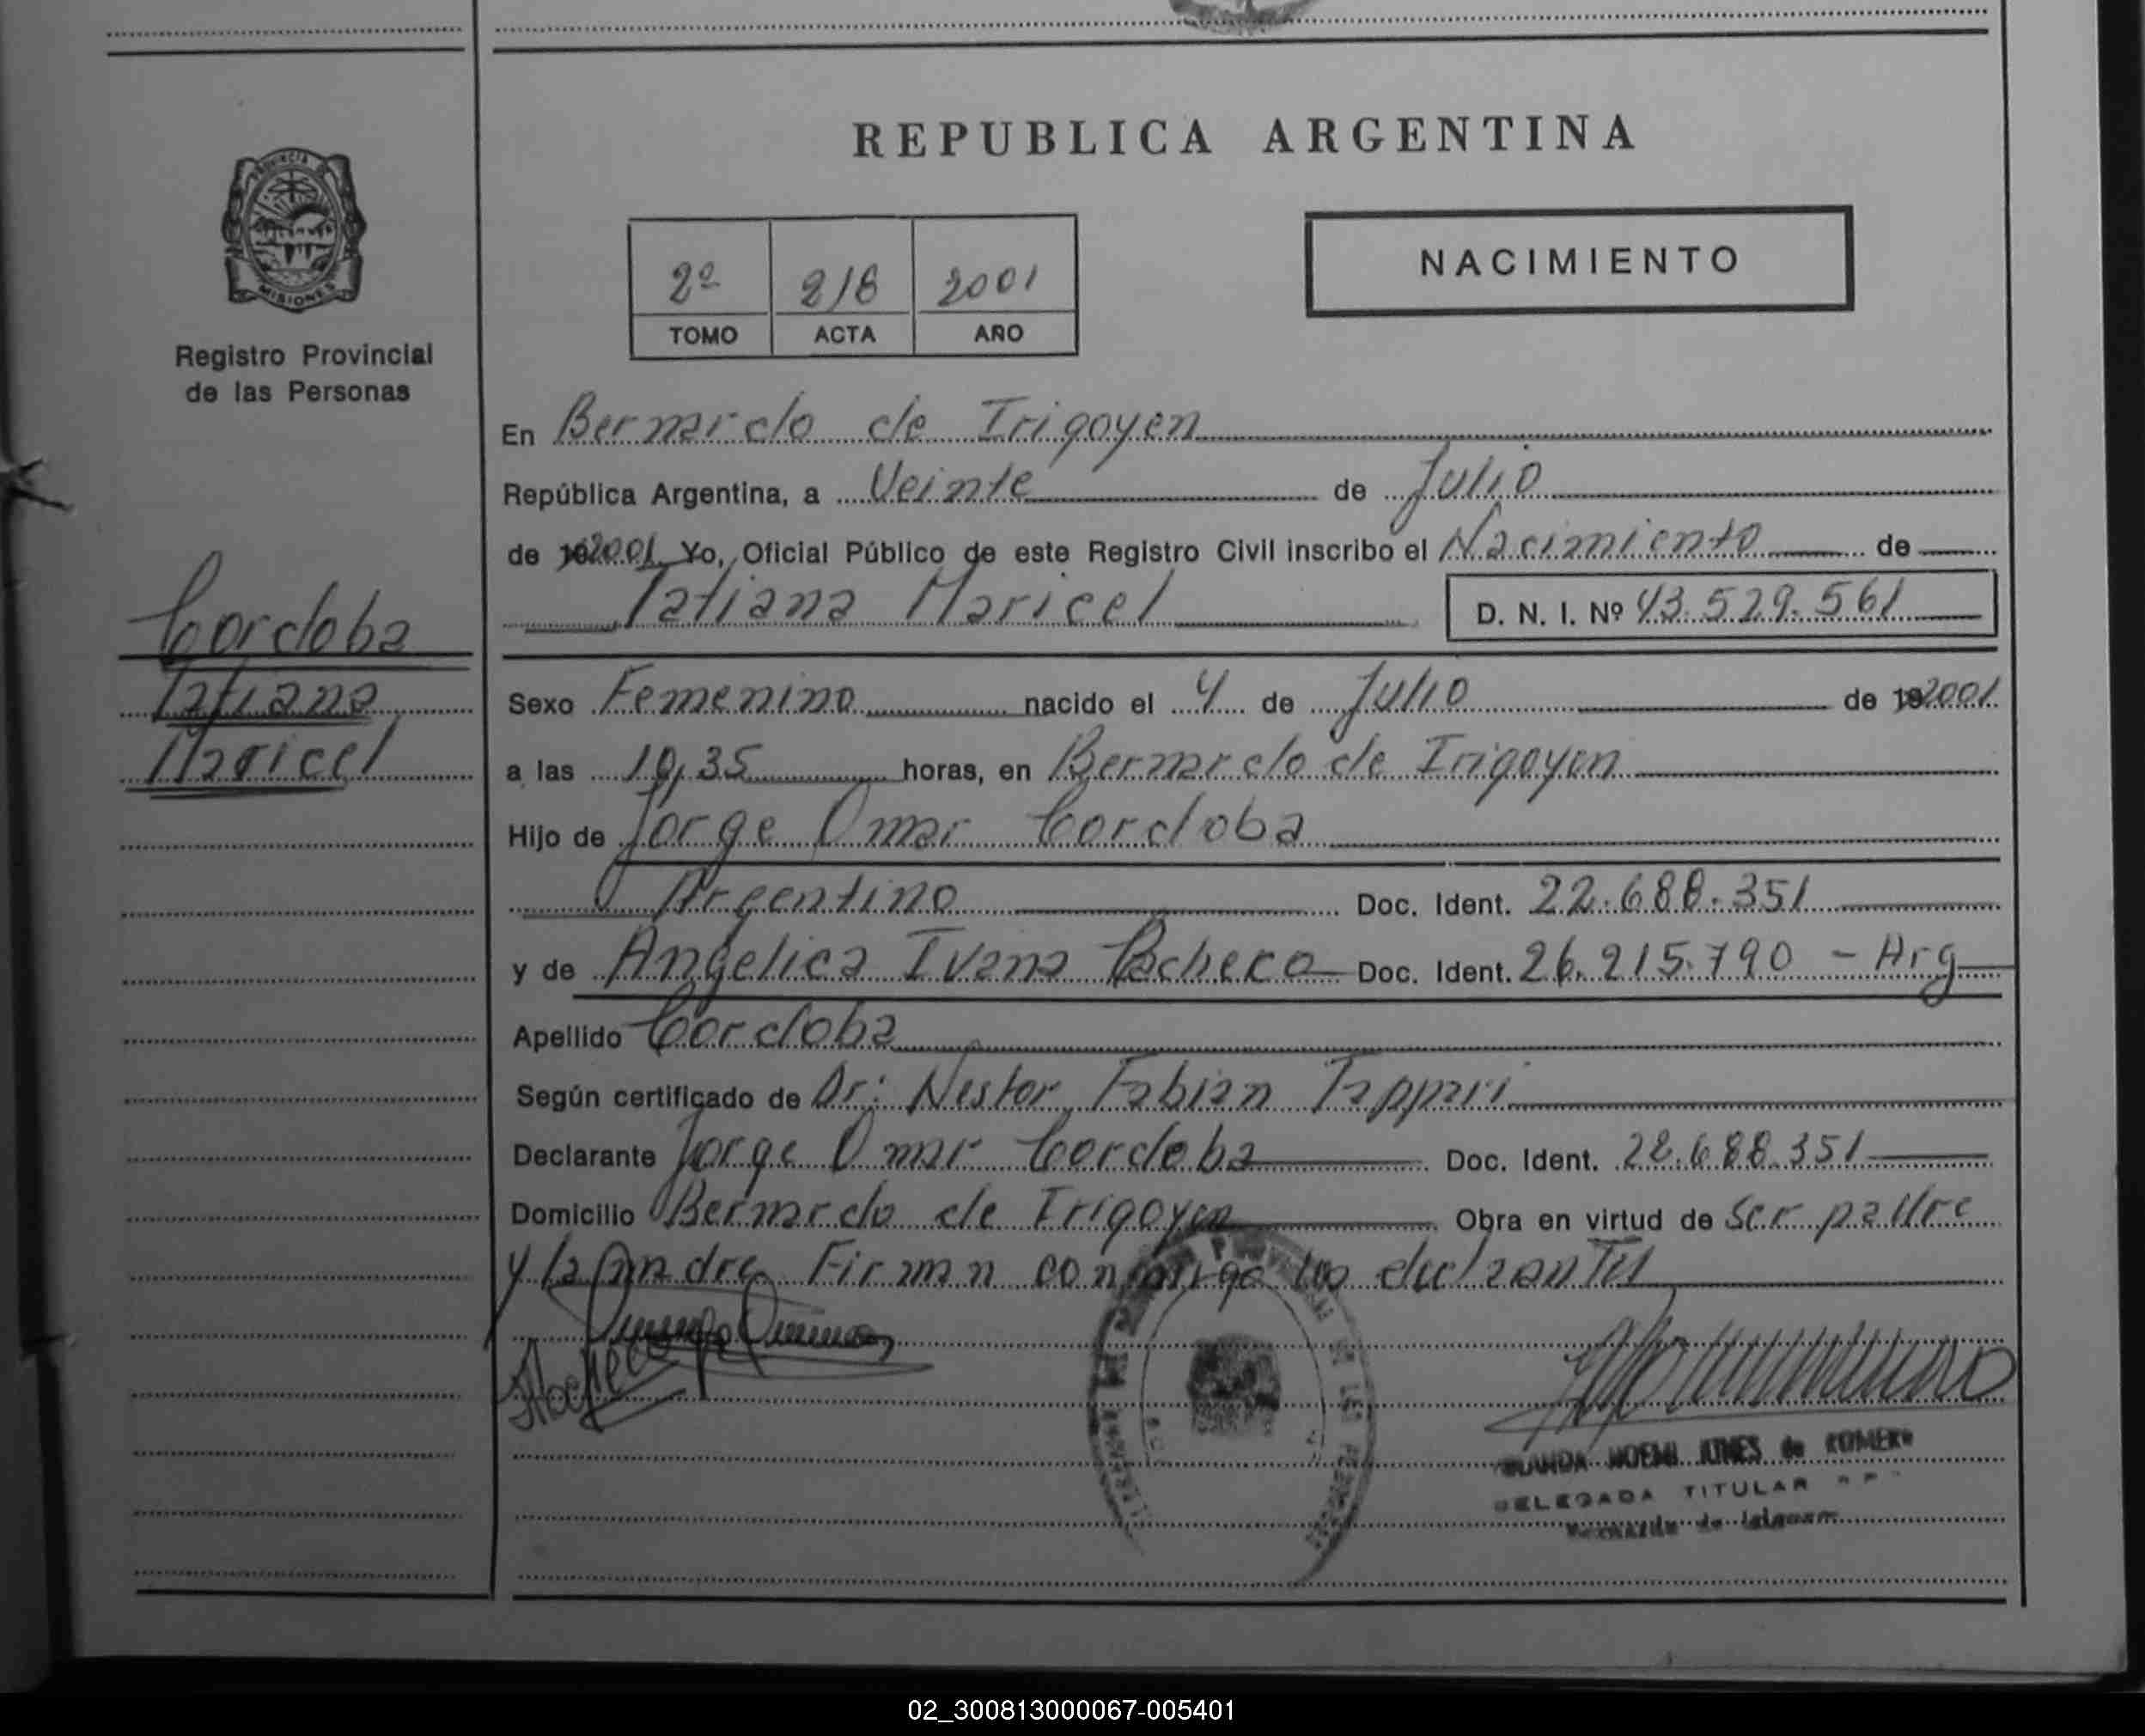 REPUBLICA ARGENTINA
NACIMIENTO
2º 218 2001
TOMO ACTA AÑO
PROVINCIA
MISIONES
Registro Provincial
de las Personas
Cordoba
Tatiana
Maricel
En Bernardo de Irigoyen
República Argentina, a Veinte de Julio
de 2001 Yo, Oficial Público de este Registro Civil inscribo el Nacimiento de
Tatiana Maricel D. N. I. Nº 43.529.561
Sexo Femenino nacido el 4 de Julio de 2001
a las 10,35 horas, en Bernardo de Irigoyen
Hijo de Jorge Omar Cordoba
Argentino Doc. Ident. 22.688.351
y de Angelica Ivana Pacheco Doc. Ident. 26.215.790 - Arg
Apellido Cordoba
Según certificado de Dr: Nestor Fabian Tappari
Declarante Jorge Omar Cordoba Doc. Ident. 22.688.351
Domicilio Bernardo de Irigoyen Obra en virtud de Ser padre
y la madre Firman conmigo los declarantes
NOEMI de ROMERO
DELEGADA TITULAR
Bernardo de Irigoyen
02_300813000067-005401